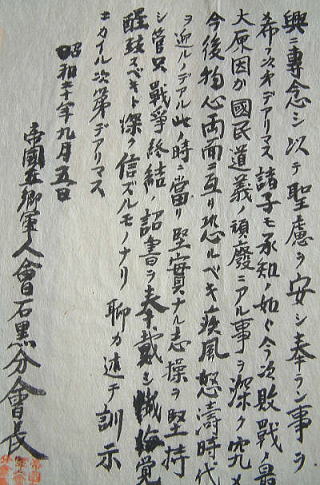 興ニ専念シ以テ聖慮ヲ安シ奉ラン事ヲ
希フ次第デアリマス 諸子モ承知ノ如ク今次敗戰ノ最
大原因ガ國民道義ノ頽廃ニアル事ヲ深ク究メ
今後物心両面ニ亙リ恐ルベキ疾風怒濤時代
ヲ迎ルデアル此ノ時ニ當リ堅實ナル志操ヲ堅持
シ管只戰爭終結ノ詔書ヲ奉戴シ懺悔覚
醒技スベキト深ク信ズルモノナリ 聊カ述テ訓示
エカイル次第デアリマス
昭和二十年九月五日
帝國在郷軍人會石黒分會長